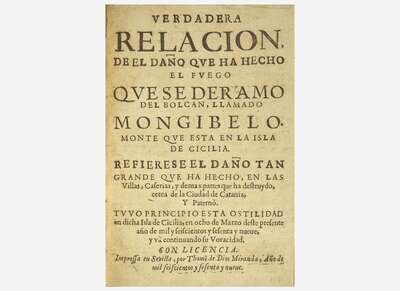 VERDADERA
RELACION,
DE EL DAÑO QVE HA HECHO
EL FVEGO
QVE SE DERAMO
DEL BOLCAN, LLAMADO
MONGIBELO,
MONTE QVE ESTA EN LA ISLA
DE CICILIA.
REFIERESE EL DAÑO TAN
GRANDE QVE HA HECHO, EN LAS
Villas, Caserias, y demas partes que ha destruydo,
cerca de la Ciudad de Catania,
Y Paternò.
TVVO PRINCIPIO ESTA OSTILIDAD
en dicha Isla de Cicilia, en ocho de Marzo deste presente
año de mil y seiscientos y sesenta y nueue,
y và continuando su Voracidad.
CON LICENCIA.
Impressa en Sevilla, por Thomè de Dios Miranda, Año de
mil seiscientos y sesenta y nueue.